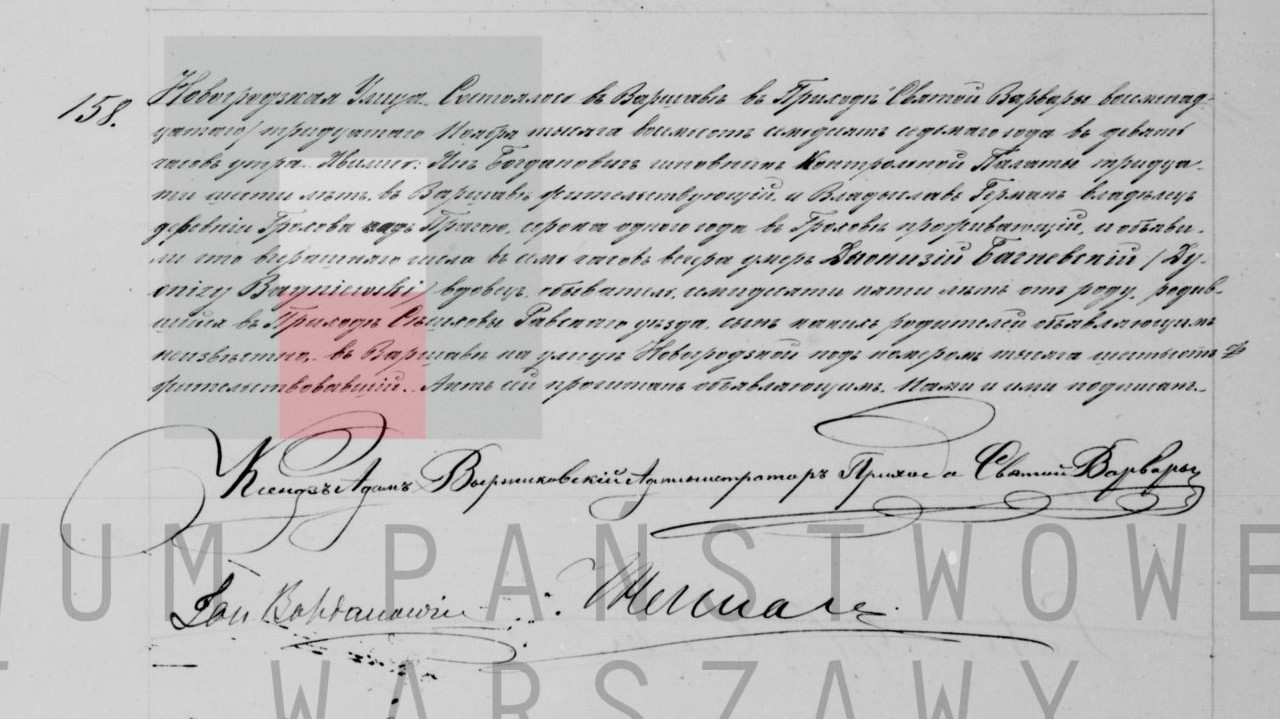 158. Новогродзкая Улица. Состоялось въ Варшавѣ въ Приходѣ Святой Варвары восемнад-
цатаго / тридцатаго Ноября тысяча восемьсотъ семьдесятъ седьмаго года въ девять
часовъ утра. Явились: Янъ Богдановичъ чиновникъ Контрольной Палаты тридца-
ти шести лѣтъ, въ Варшавѣ жительствующій, и Владыславъ Германъ владѣлецъ
деревни Грохова надъ Прагою, сорока одного года въ Гроховѣ проживающій, и объяви-
ли что вчерашняго числа въ семь часовъ вечера умеръ Діонизій Багневскій / Dy-
onizy Bagniewski / вдовецъ, обыватель, семидесяти пяти лѣтъ отъ роду, родив-
шійся въ Приходѣ Равскаго уѣзда, сынъ родителей объявляющимъ
неизвѣстно, въ Варшавѣ на улицѣ Новогродзкой подъ номеромъ тысяча шестьсотъ
жительствовавшій. Актъ сей прочитанъ объявляющимъ, Нами и ими подписанъ.
Ксендзъ Адамъ Администраторъ Прихода Святой Варвары
Jan Bohdanowicz WHerman
WUM PAŃSTWOWE
T WARSZAWY